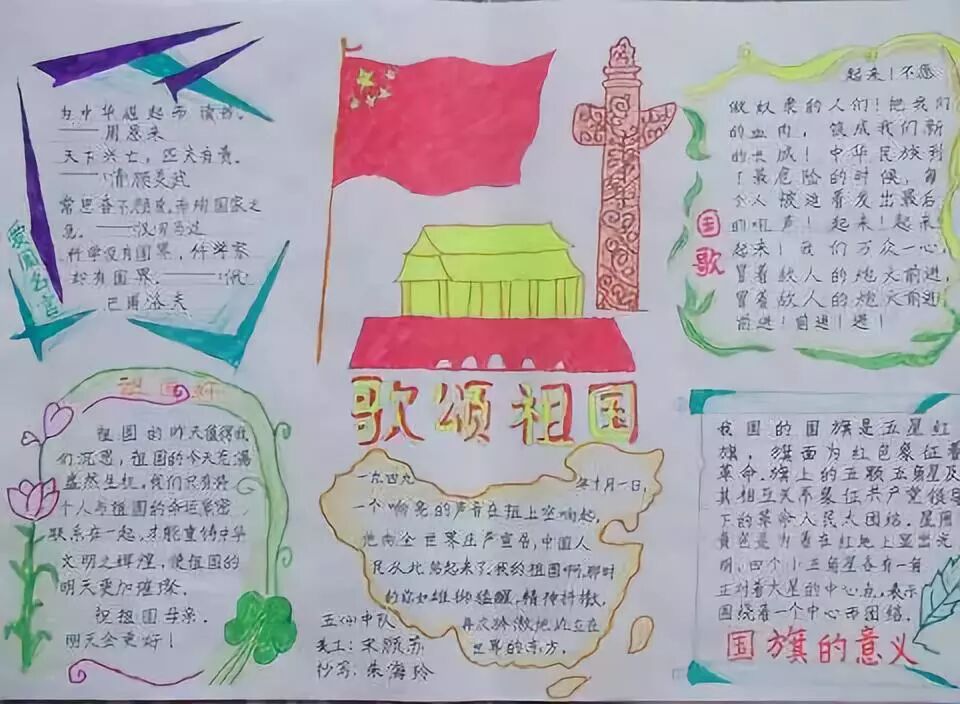 爱国名言
为中华崛起而读书。
——周恩来
天下兴亡，匹夫有责。
——清顾炎武
常思奋不顾身，而殉国家之
急。——汉司马迁
科学没有国界，科学家
却有国界。——俄
巴甫洛夫
国歌
起来！不愿
做奴隶的人们！把我们
的血肉，筑成我们新
的长城！中华民族到
了最危险的时候，每
个人被迫着发出最后
的吼声！起来！起来
起来！我们万众一心，
冒着敌人的炮火前进，
冒着敌人的炮火前进
前进！前进！进！
歌颂祖国
祖国
祖国的昨天值得我
们沉思，祖国的今天充满
盎然生机，我们只有将
个人与祖国的命运紧密
联系在一起，才能重铸中华
文明之辉煌，使祖国的
明天更加璀璨。
祝祖国母亲，
明天会更好！
一九四九年十月一日，
一个响亮的声音在祖上空响起，
他向全世界庄严宣告，中国人
民从此站起来了。我的祖国啊，那时
的你如雄狮猛醒，精神抖擞，
再次骄傲地屹立在
世界的东方。
五 中队
美工：宋颐苏
抄写：朱海玲
我国的国旗是五星红
旗，旗面为红色象征着
革命。旗上的五颗五角星及
其相互关系象征共产党领导
下的革命人民大团结。星用
黄色是为着在红地上显出光
明，四个小五角星各有一角
正对着大星的中心点，表示
围绕着一个中心而团结。
国旗的意义